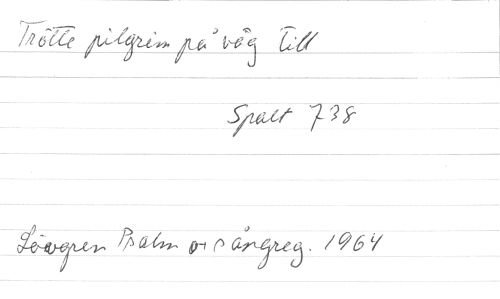 Trötte pilgrim på väg till
Spalt 738
Lövgren Psalm o sångreg. 1964